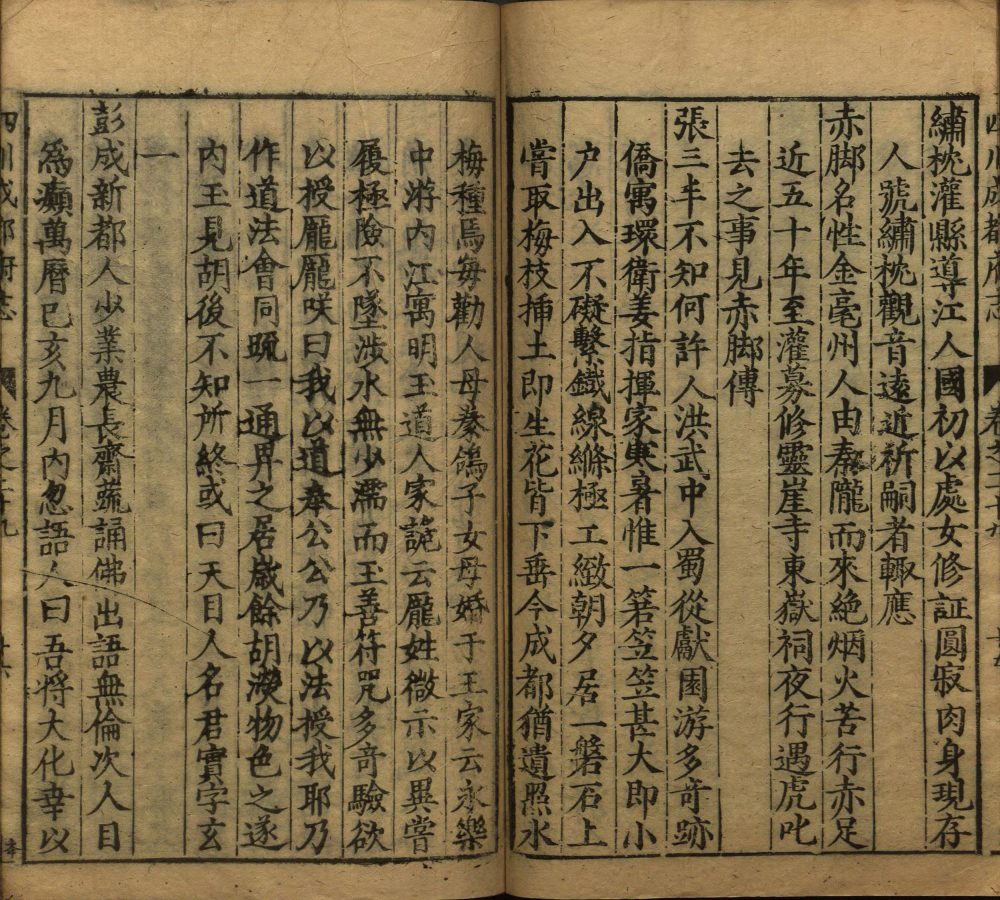 四川成都府志
卷之三十九
繡枕灌縣導江人國初以處女修証圓寂肉身現存
人號繡枕觀音遠近祈嗣者輙應
赤脚名性金亳州人由秦隴而來絶烟火苦行赤足
近五十年至灌募修靈崖寺東嶽祠夜行遇虎叱
去之事見赤脚傳
張三丰不知何許人洪武中入蜀從獻園游多奇跡
僑寓環衛姜指揮家寒暑惟一箬笠笠甚大即小
户出入不礙繫鐡線縧極工緻朝夕居一磐石上
嘗取梅枝揷土即生花皆下垂今成都猶遺照水
梅種焉每勸人母豢鴿子女母婚于王家云永樂
中游内江寓明玉道人家詭云龎姓微示以異嘗
履極險不墜涉水無少濡而玉善符咒多奇驗欲
以授龎龎咲曰我以道奉公公乃以法授我耶乃
作道法會同䟽一通畀之居歲餘胡濙物色之遂
内玉見胡後不知所終或曰天目人名君實字玄
一
彭成新都人少業農長齋蔬誦佛出語無倫次人目
爲癲萬曆已亥九月内忽語人曰吾將大化幸以
四川成都府志
卷之三十九